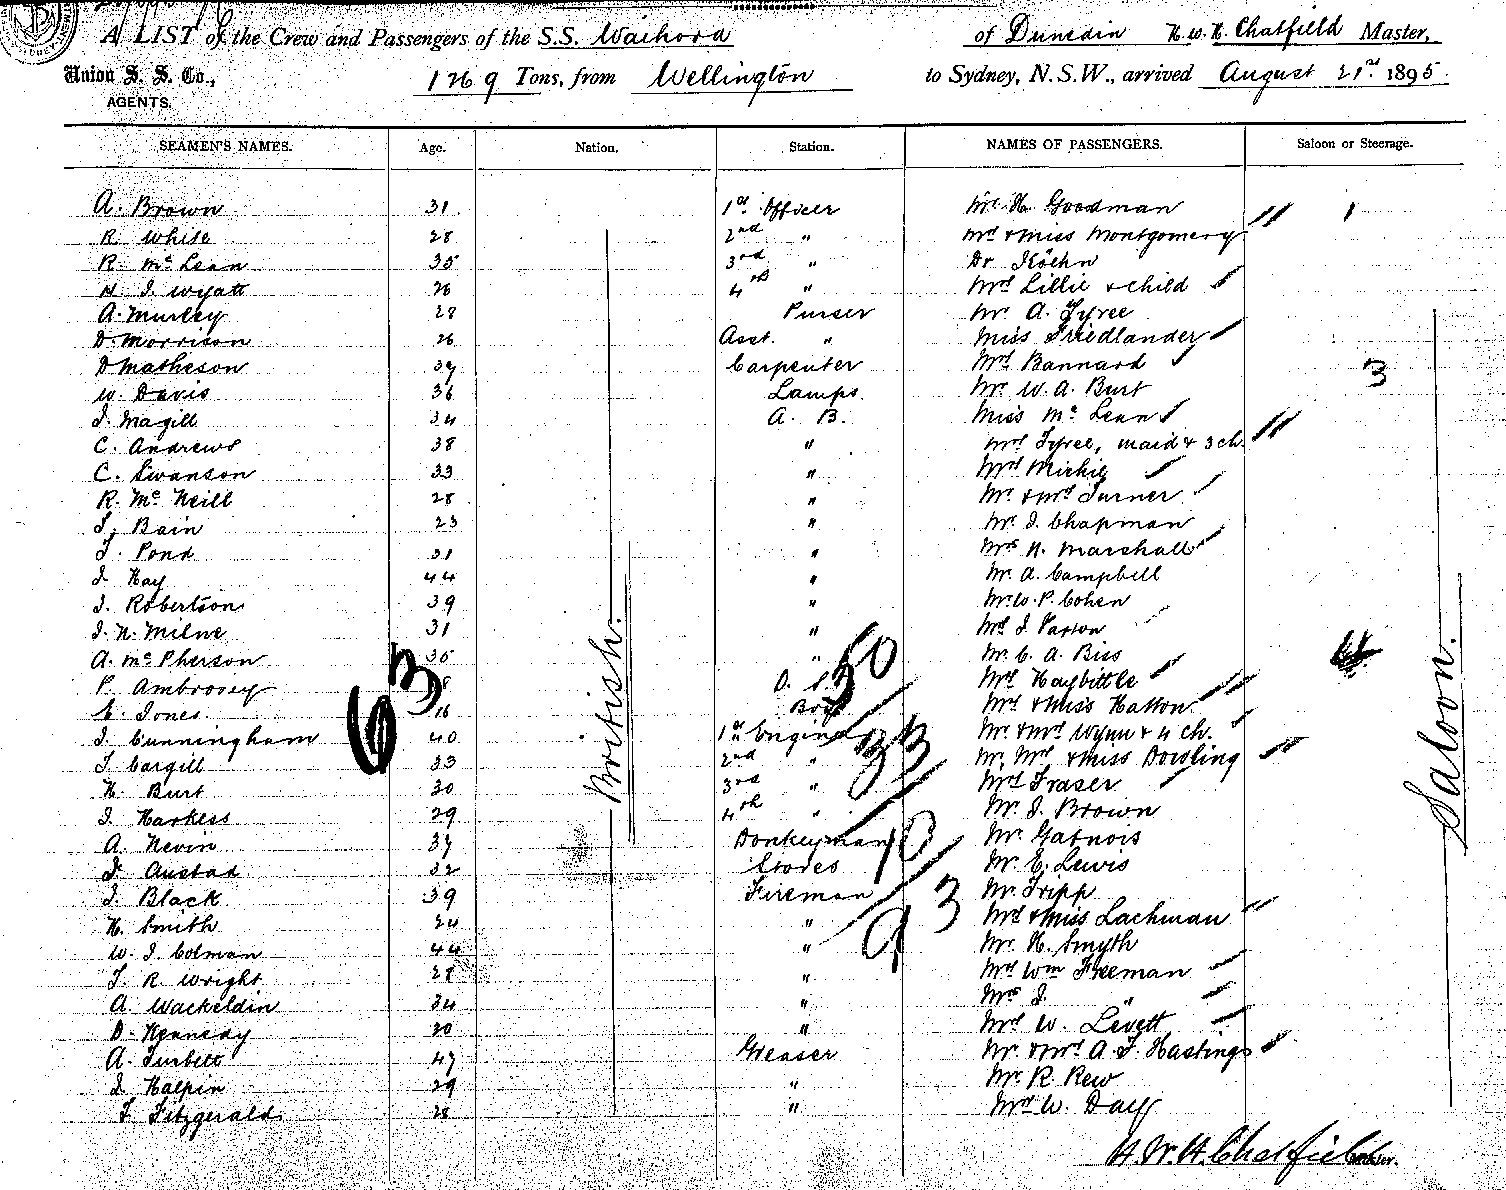 A LIST of the Crew and Passengers of the S.S. Waihora of Dunedin H. W. H. Chatfield Master,
Union S. S. Co., 1269 Tons, from Wellington to Sydney, N.S.W., arrived August 21st 1895.
AGENTS.
SEAMEN'S NAMES. Age. Nation. Station. NAMES OF PASSENGERS. Saloon or Steerage.
A. Brown 31 1st Officer Mr H. Goodman 1
R. White 28 2nd " Mrs & Miss Montgomery
R. Mc Lean 35 3rd " Dr
H. J. Wyatt 26 4th " Mrs Lillie & child
A. Murley 28 Purser Mr A. Tyree
D. Morrison 26 Asst. " Miss Friedlander
D Matheson 37 Carpenter Mrs Bannard 3
W. Davis 36 Lamps. Mr W. A. Burt
J. Magill 34 A. B. Miss Mc Lean
C. Andrews 38 " Mrs Tyree, maid & 3 ch.
C. Swanson 33 " Mrs Michie
R. Mc Neill 28 " Mr. & Mrs Turner
J. Bain 23 " Mr J. Chapman
J. Pond 31 " Mrs H. Marshall
J. Hay 44 " Mr. A. Campbell
J. Robertson 39 " Mr W. P. Cohen
J. N. Milne 31 " Mrs J.
A. Mc Pherson 35 " Mr. C. A. Biss
P. Ambrosey 8 O. S. Mrs Haybittle
E. Jones 16 Boy Mrs & Miss Hatton
J. Cunningham 40 1st Engineer Mr. & Mrs Wynn & 4 ch.
J. Cargill 33 2nd " Mr, Mrs & Miss Dowling
H. Burt 30 3rd " Mrs Fraser
J. Harkess 29 4th " Mr. J. Brown
A. Nevin 37 Donkeyman Mr.
F. Austad 32 Stores Mr. E. Lewis
J. Black 39 Fireman Mr. Tripp
H. Smith 24 " Mrs & Miss Lachman
W. J. Colman 44 " Mr. H. Smyth
J. R. Wright 28 " Mrs Wm Freeman
A. Wackeldin 34 " Mrs J. "
D. Kennedy 30 " Mrs W. Levett
A. Turbett 47 Greaser Mr. & Mrs A. F. Hastings
J. Halpin 29 " Mr. R. Rew
F. Fitzgerald 28 " Mrs W. Day
British.
Saloon.
63
50
33
13
9 3
H. W. H. Chatfield Master.